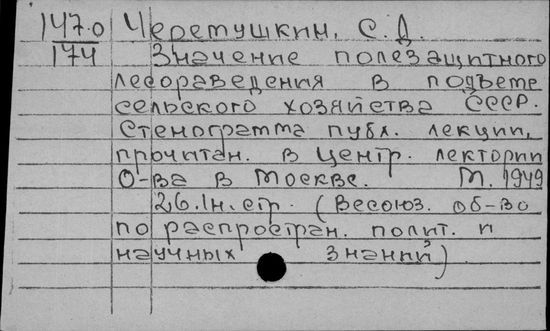 147.0 Черемушкин, С.Д.
174 Значение полезащитного
лесоразведения в подъеме
сельского хозяйства СССР.
Стенограмма публ. лекции,
прочитан. в Центр. лектории
О-ва в Москве. М. 1949
26.1н.стр. (Всесоюз. об-во
по распростран. полит. и
научных знаний)